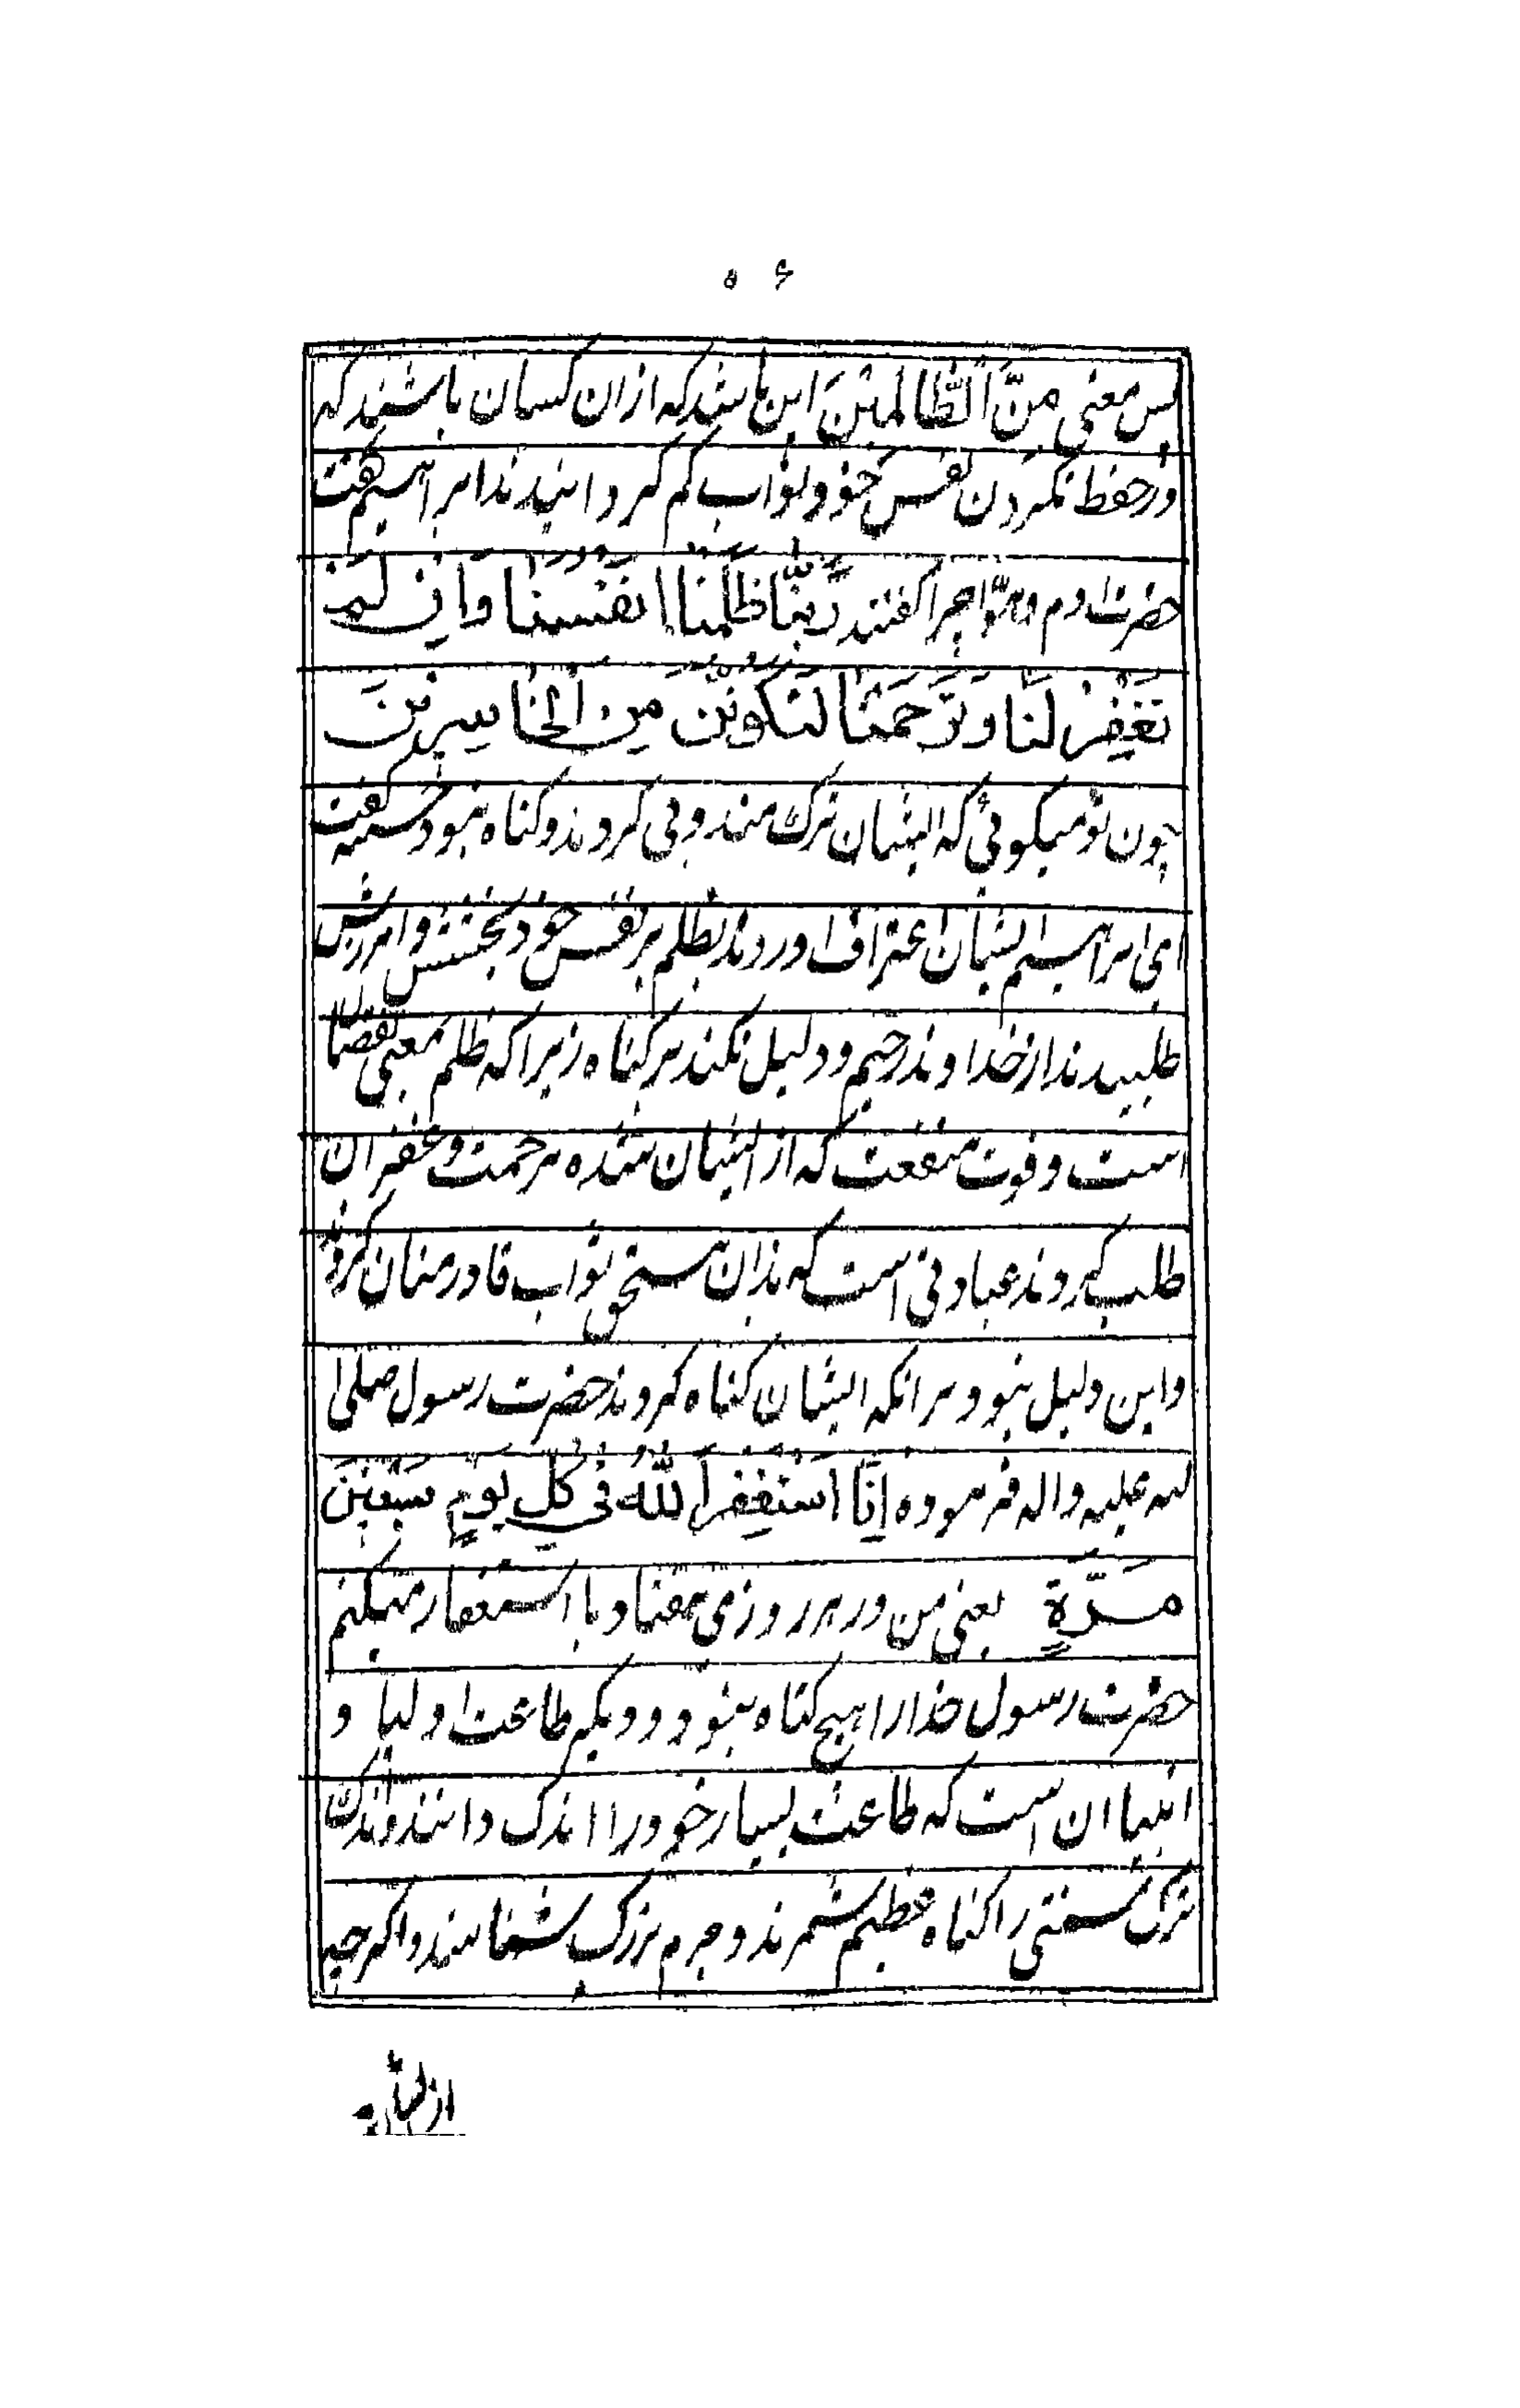 ۶ ۵
پس معنی مِنَّ الظَّالِمِیْنَ این باشد که از ان کسان باشند که
در حفظ نکردن نفس خود ثواب کم گردانیدند ابراهیم گفت
حضرت ادم و حوّا چرا گفتند رَبَّنَا ظَلَمْنَا اَنْفُسَنَا وَاِنْ لَمْ
تَغْفِرْ لَنَا وَ تَرْحَمْنَا لَنَکُونَنَّ مِنَ الْخَاسِرِیْنَ
چون تو میکوئی که ایشان ترک مندوبی کردند و کناه نبود حسنیه گفت
ای ابراهیم ایشان اعتراف اوردند بظلم بر نفس خود بخشش و امرزش
طلبیدند از خداوند رحیم و دلیل نکند بر کناه زیرا که ظلم بمعنی نقصان
است و فوت منفعت که از ایشان شده مرحمت و غفران
طلب کردند عبادتی است که بدان مستحق ثواب قادر منان کردند
و این دلیل نبود بر انکه ایشان کناه کردند حضرت رسول صلی ا
لله علیه و اله فرموده اِنَّا اَسْتَغْفِرُ اللّٰهَ فِی کُلِّ یَوْمٍ سَبْعِیْنَ
مَرَّةٍ یعنی من در هر روزی هفتاد با استغفار میکنم
حضرت رسول خدا را هیچ کناه نبود و دیکر طاعت اولیا و
انبیا ان است که طاعت بسیار خود را اندک دانند و اندک
ترک سنتی را کناه عظیم شمرند و جرم بزرک شناسند و اکرچه